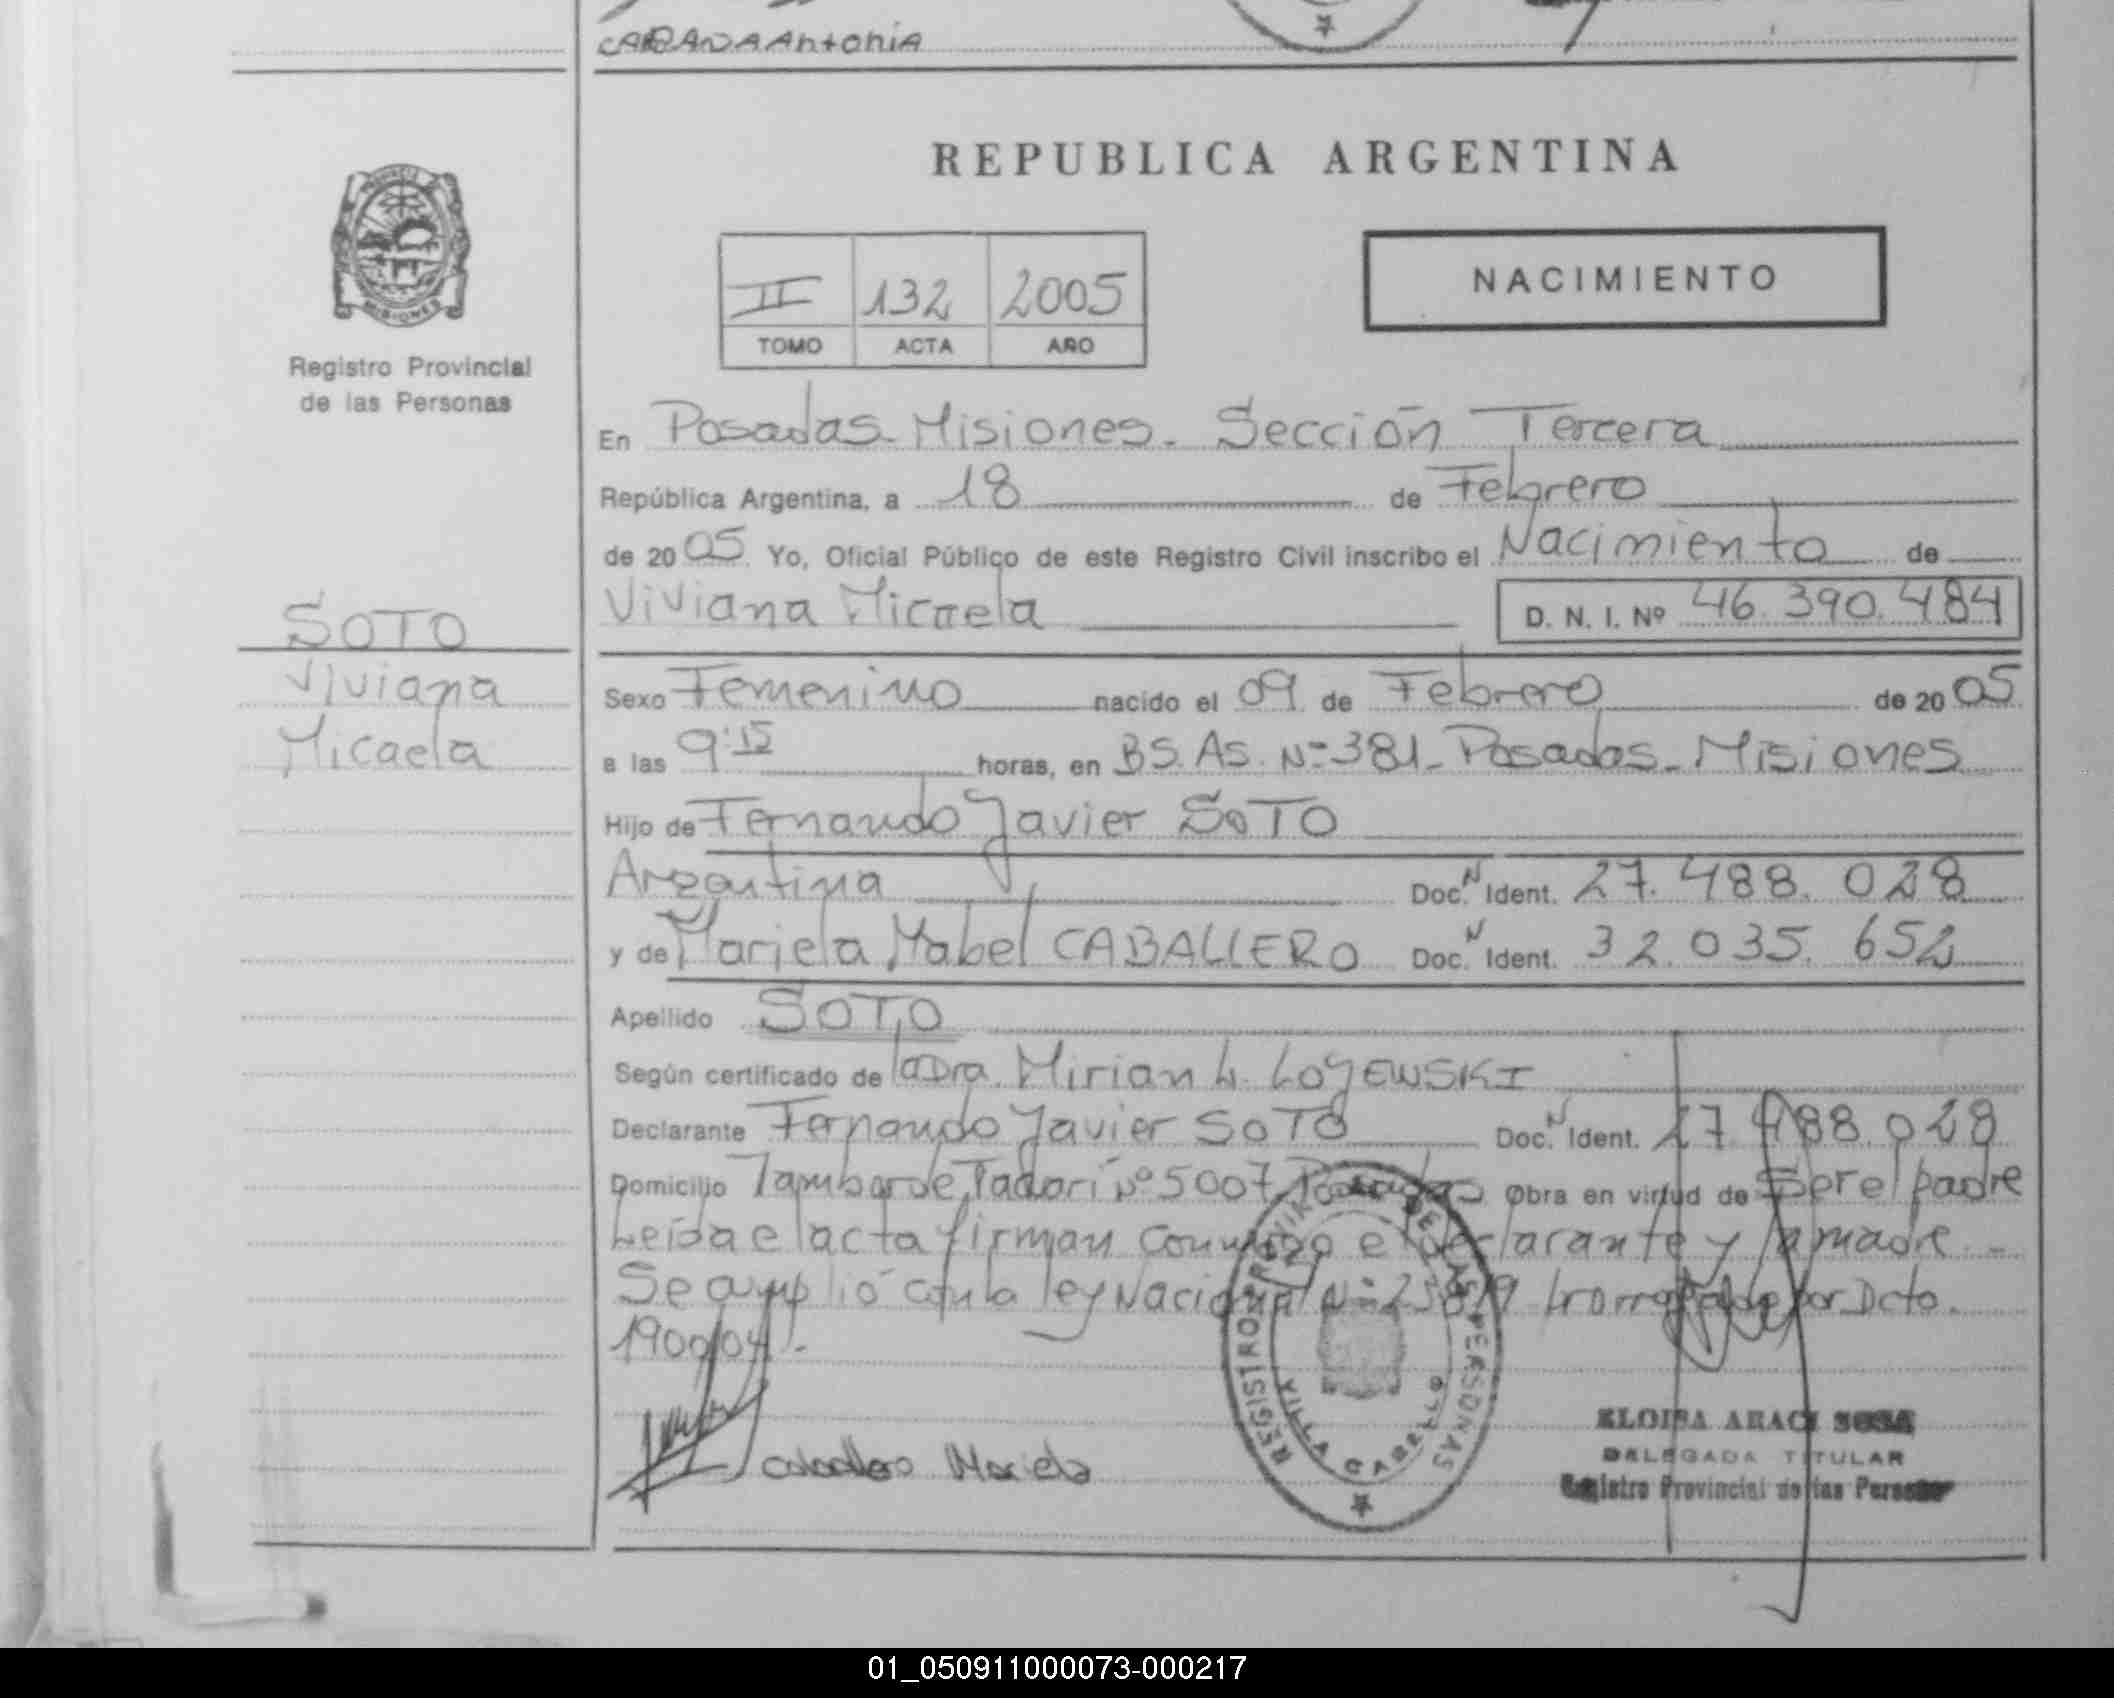 CABANA Antonia
REPUBLICA ARGENTINA
II 132 2005
TOMO ACTA AÑO
NACIMIENTO
PROVINCIA DE
MISIONES
Registro Provincial
de las Personas
En Posadas-Misiones. Sección Tercera
República Argentina, a 18 de Febrero
de 2005 Yo, Oficial Público de este Registro Civil inscribo el Nacimiento de
Viviana Micaela D. N. I. Nº 46.390.484
SOTO
Viviana
Micaela
Sexo Femenino nacido el 09 de Febrero de 2005
a las 9:15 horas, en BS. AS. Nº 381-Posadas-Misiones
Hijo de Fernando Javier SOTO
Argentina Doc. N Ident. 27.488.028
y de Mariela Mabel CABALLERO Doc. N Ident. 32.035.652
Apellido SOTO
Según certificado de la Dra. Mirian L. LOYEWSKI
Declarante Fernando Javier SOTO Doc. N Ident. 27.488.028
Domicilio Tambor de Nº 5007 Posadas Obra en virtud de Ser el padre
Leída el acta firman conmigo el declarante y la madre.-
Se amplió con la ley Nacional Nº por Dcto.
1900/04.-
Caballero Mariela
REGISTRO PROVINCIAL DE LAS PERSONAS
VILLA CABELLO
ELOISA ARACI SOSA
DELEGADA TITULAR
Registro Provincial de las Personas
01_050911000073-000217